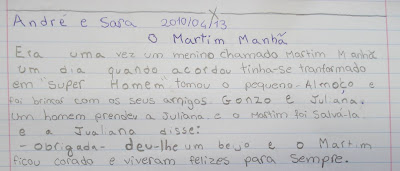 André e Sara 2010/04/13
O Martim Manhã
Era uma vez um menino chamado Martim Manhã
um dia quando acordou tinha-se tranformado
em "Super Homem" tomou o pequeno-Almoço e
foi brincar com os seus amigos. Gonzo e Juliana.
Um homem prendeu a Juliana e o Martim foi Salvá-la
e a Jualiana disse:
- obrigada - deu-lhe um beijo e o Martim
ficou corado e viveram felizes para Sempre.